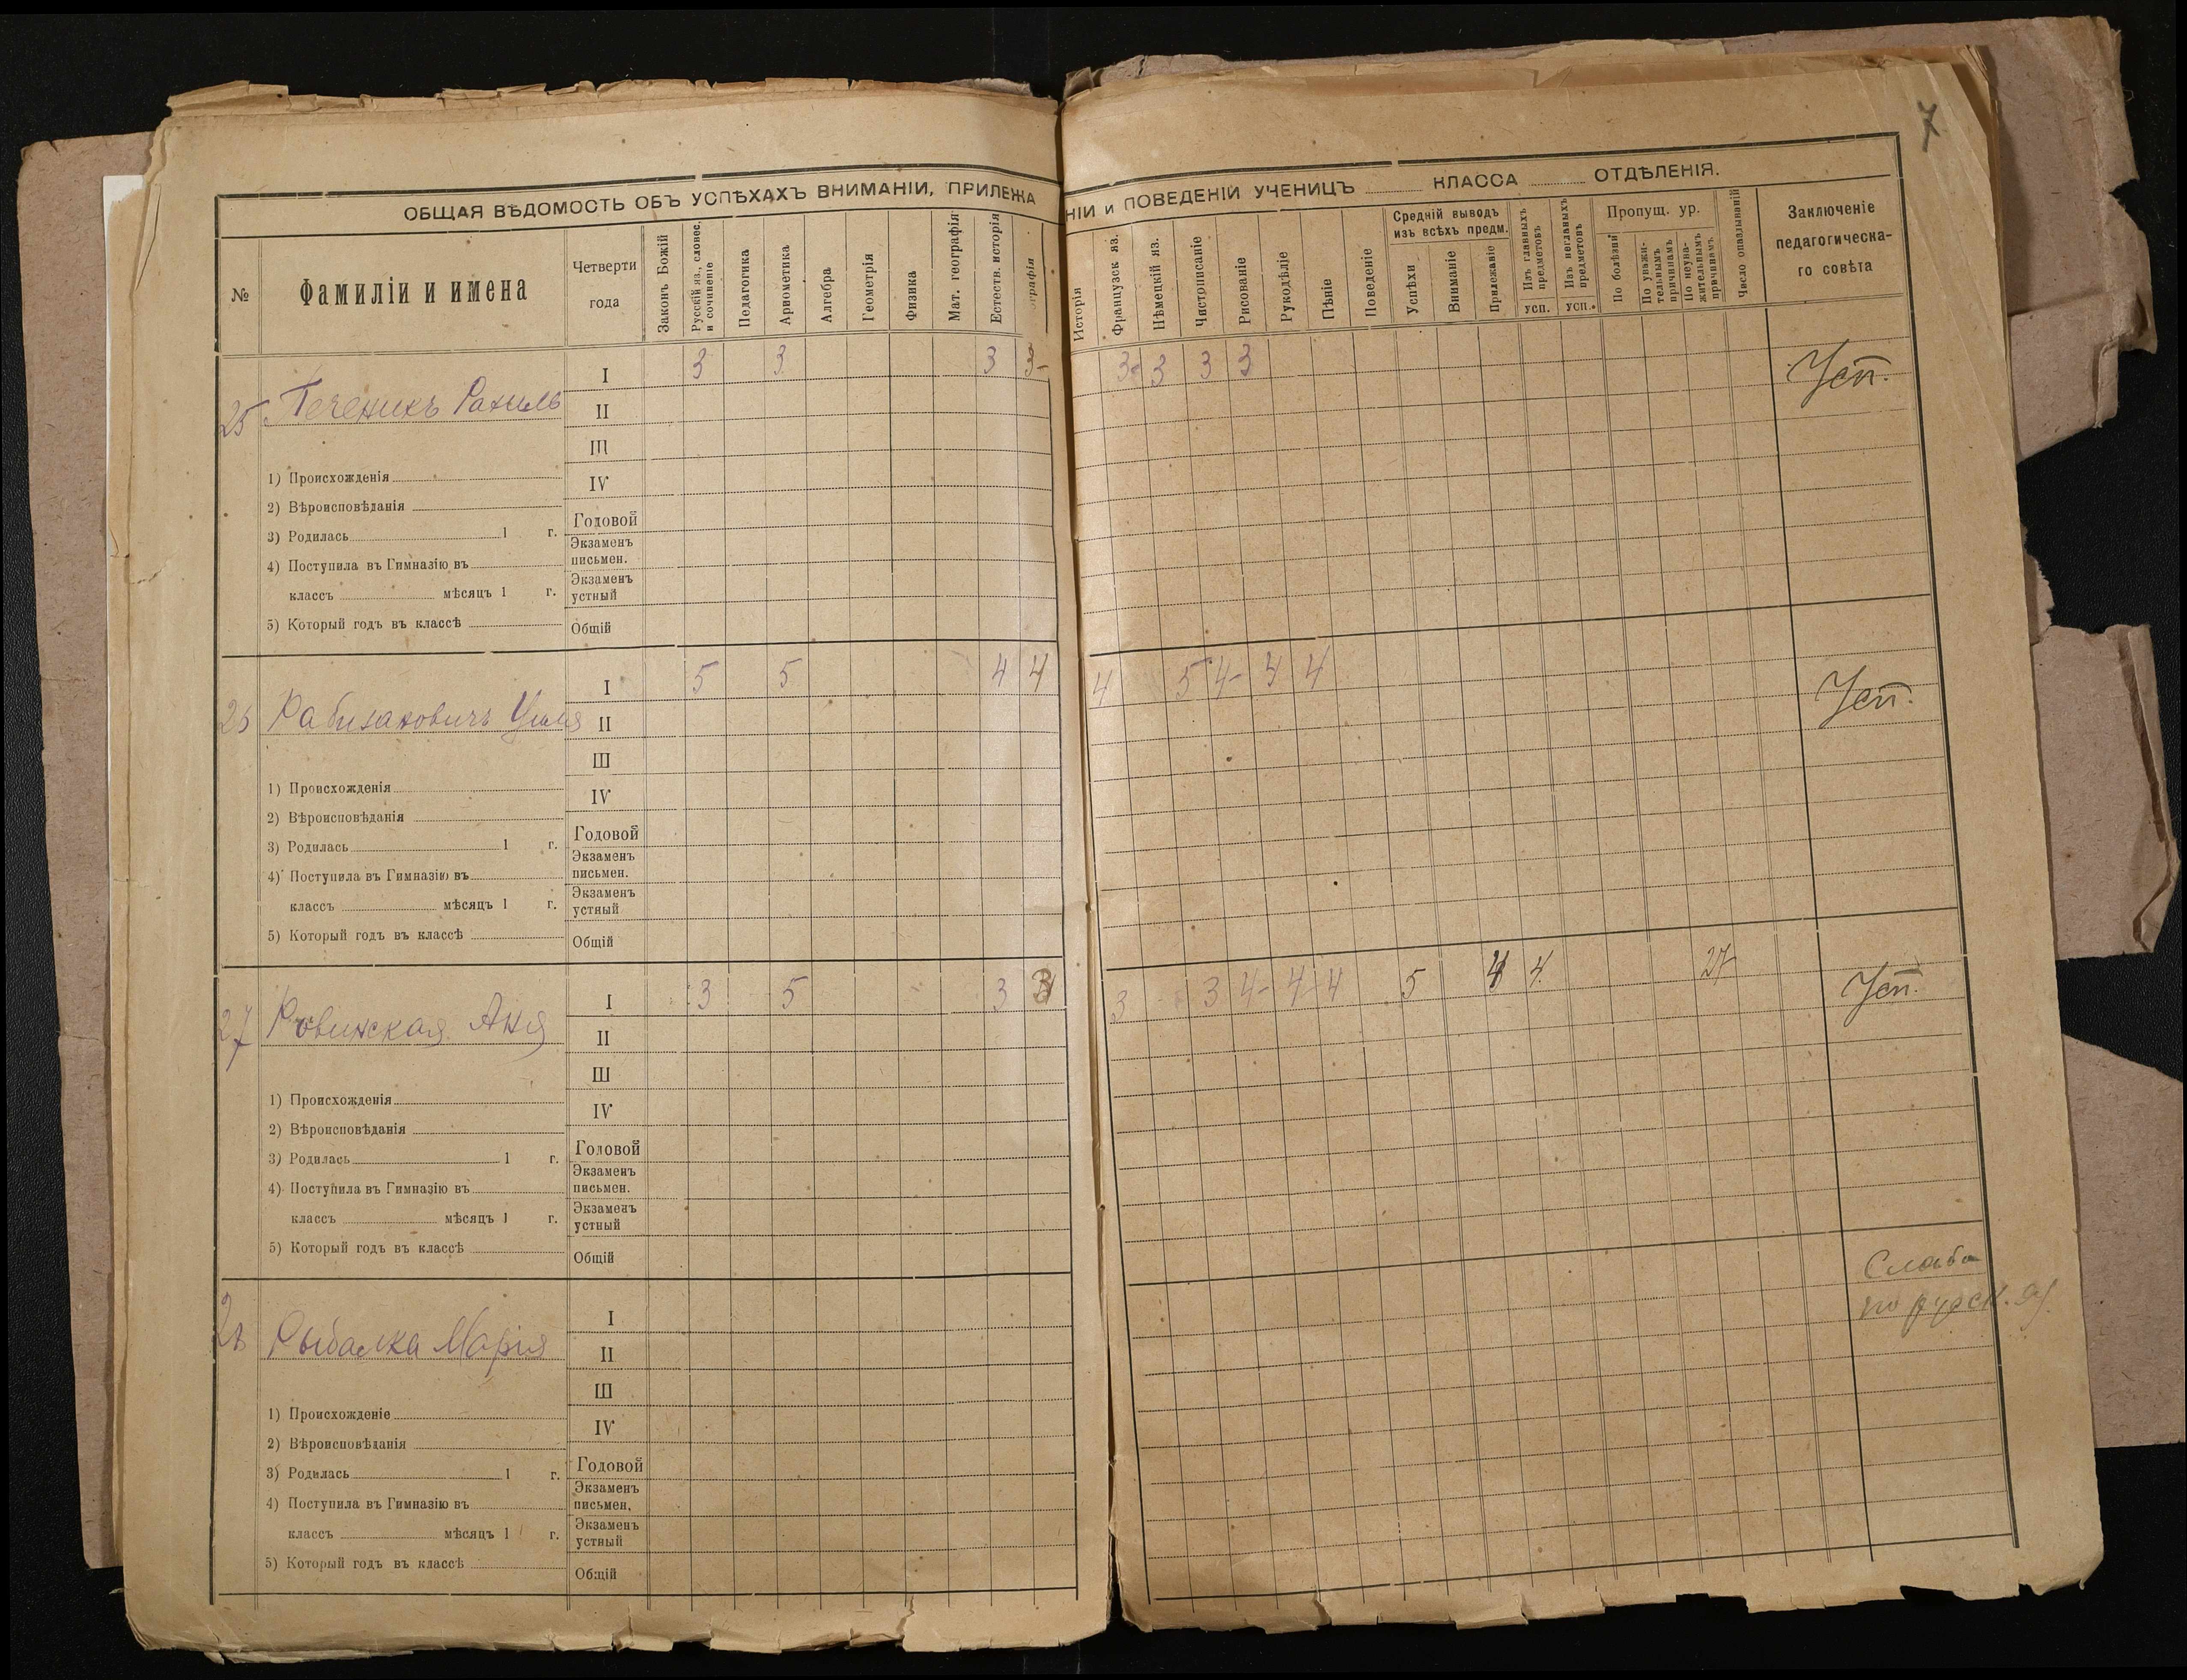 7
ОБЩАЯ ВѢДОМОСТЬ ОБЪ УСПѢХАХЪ ВНИМАНІИ, ПРИЛЕЖА
НІИ и ПОВЕДЕНІЙ УЧЕНИЦЪ КЛАССА ОТДѢЛЕНІЯ.
№
Фамиліи и имена
Четверти
года
Законъ Божій
Русскій яз., словес.
и сочиненіе
Педагогика
Ариѳметика
Алгебра
Геометрія
Физика
Мат. географія
Естеств. исторія
Исторія
Французск яз.
Нѣмецкій яз.
Чистописаніе
Рисованіе
Рукодѣліе
Пѣніе
Поведеніе
Средній выводъ
изъ всѣхъ предм.
Успѣхи
Вниманіе
Прилежаніе
Изъ главныхъ
предметовъ
усп.
Изъ неглавныхъ
предметовъ
усп.
Пропущ. ур.
По болѣзни
По уважи-
тельнымъ
причинамъ
По неува-
жительнымъ
причинамъ
Число опаздываній
Заключеніе
педагогическа-
го совѣта
25 Печеникъ Рахиль
I 3 3 3 3- 3- 3 3 3 Усп.
II
III
1) Происхожденія
IV
2) Вѣроисповѣданія
Годовой
3) Родилась 1 г.
Экзаменъ
письмен.
4) Поступила въ Гимназію въ
Экзаменъ
устный
классъ мѣсяцъ 1 г.
5) Который годъ въ классѣ
Общій
26 Рабинановичъ
I 5 5 4 4 4 5 4- 4 4 Усп.
II
III
1) Происхожденія
IV
2) Вѣроисповѣданія
Годовой
3) Родилась 1 г.
Экзаменъ
письмен.
4) Поступила въ Гимназію въ
Экзаменъ
устный
классъ мѣсяцъ 1 г.
5) Который годъ въ классѣ
Общій
27 Ровинская Аня
I 3 5 3 3 3 3 4- 4 4 5 4 4 27 Усп.
II
III
1) Происхожденія
IV
2) Вѣроисповѣданія
Годовой
3) Родилась 1 г.
Экзаменъ
письмен.
4) Поступила въ Гимназію въ
Экзаменъ
устный
классъ мѣсяцъ 1 г.
5) Который годъ въ классѣ
Общій
28 Рыбалка Марія
I Слаба
по русск. яз.
II
III
1) Происхожденіе
IV
2) Вѣроисповѣданія
Годовой
3) Родилась 1 г.
Экзаменъ
письмен.
4) Поступила въ Гимназію въ
Экзаменъ
устный
классъ мѣсяцъ 1 г.
5) Который годъ въ классѣ
Общій